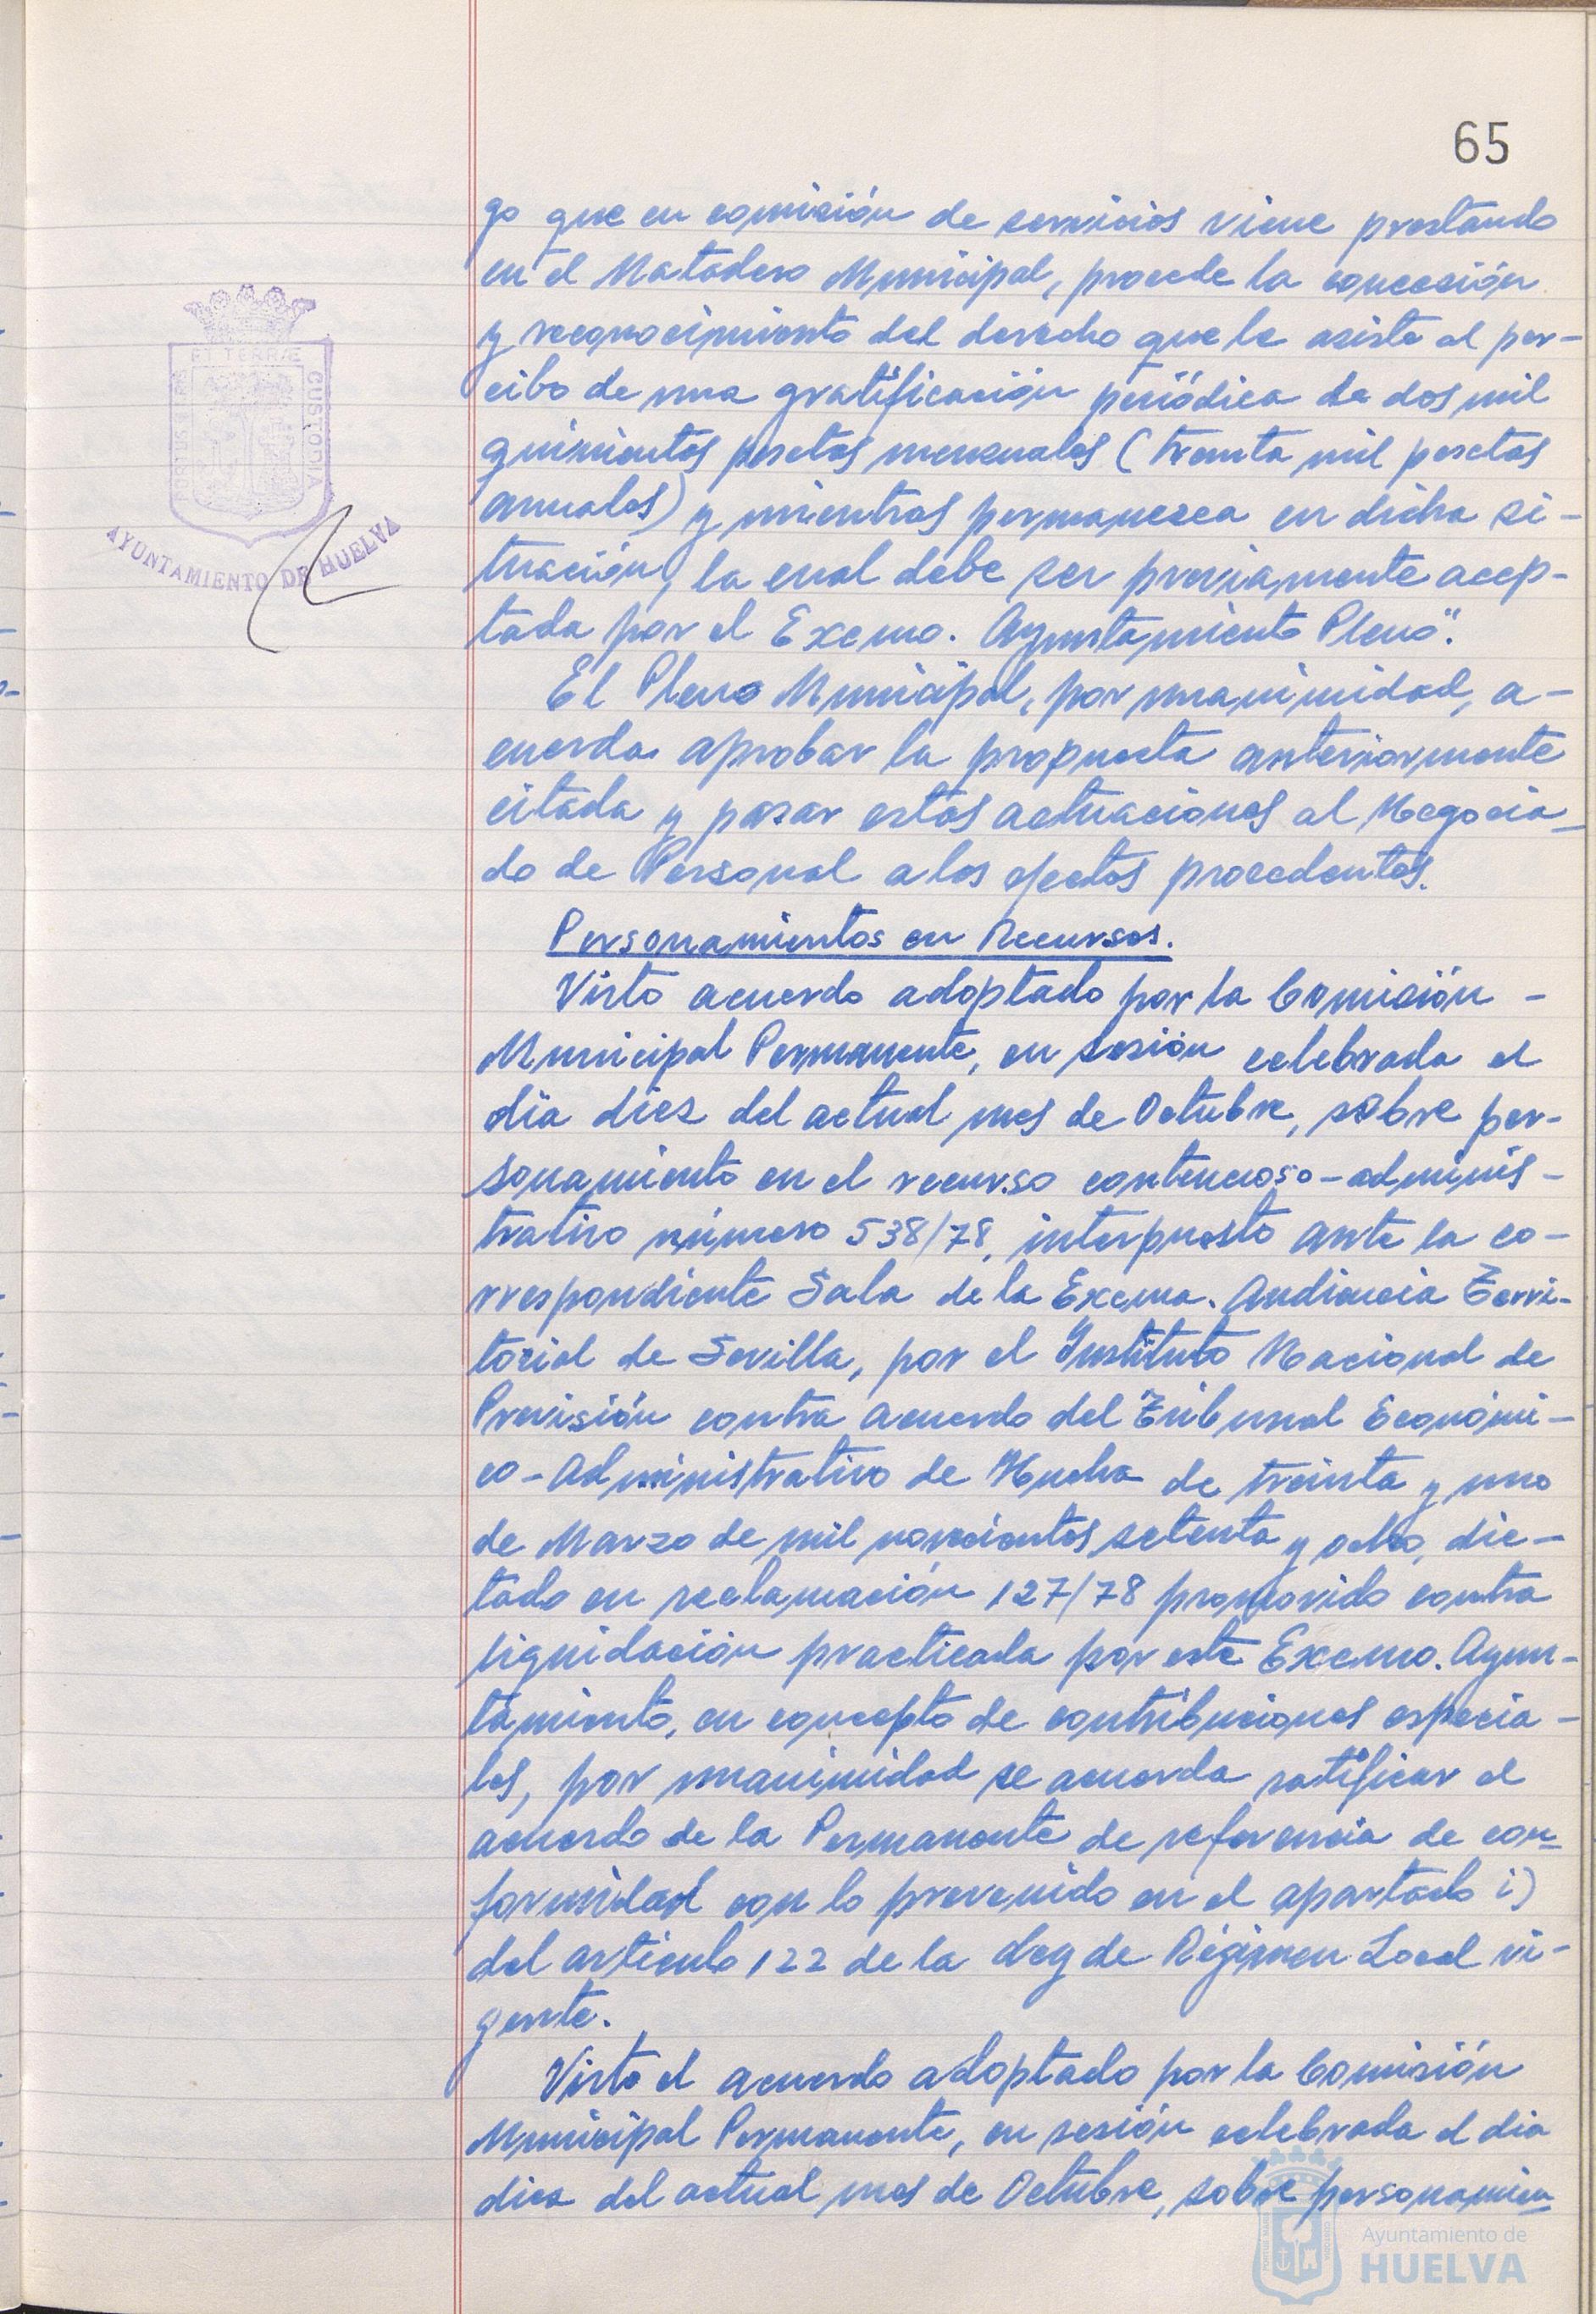 65
go que en comisión de servicios viene prestando
en el Matadero Municipal, procede la concesión
y reconocimiento del derecho que le asiste al per-
cibo de una gratificación periódica de dos mil
quinientas pesetas mensuales (treinta mil pesetas
anuales) y mientras permanezca en dicha si-
tuación, la cual debe ser previamente acep-
tada por el Excmo. Ayuntamiento Pleno".
El Pleno Municipal, por unanimidad, a-
cuerda aprobar la propuesta anteriormente
citada y pasar estas actuaciones al Negocia-
do de Personal a los efectos procedentes.
Personamientos en Recursos.
Visto acuerdo adoptado por la Comisión -
Municipal Permanente, en sesión celebrada el
día diez del actual mes de Octubre, sobre per-
sonamiento en el recurso contencioso-adminis-
trativo número 538/78, interpuesto ante la co-
rrespondiente Sala de la Excma. Audiencia Terri-
torial de Sevilla, por el Instituto Nacional de
Previsión contra acuerdo del Tribunal Económi-
co-Administrativo de Huelva de treinta y uno
de Marzo de mil novecientos setenta y ocho, dic-
tado en reclamación 127/78 promovido contra
liquidación practicada por este Excmo. Ayun-
tamiento, en concepto de contribuciones especia-
les, por unanimidad se acuerda ratificar el
acuerdo de la Permanente de referencia de con-
formidad con lo prevenido en el apartado i)
del artículo 122 de la Ley de Régimen Local vi-
gente.
Visto el acuerdo adoptado por la Comisión
Municipal Permanente, en sesión celebrada el dia
diez del actual mes de Octubre, sobre personamien-
ET TERRÆ
CUSTODIA
PORTUS MARIS
AYUNTAMIENTO DE HUELVA
Ayuntamiento de
HUELVA